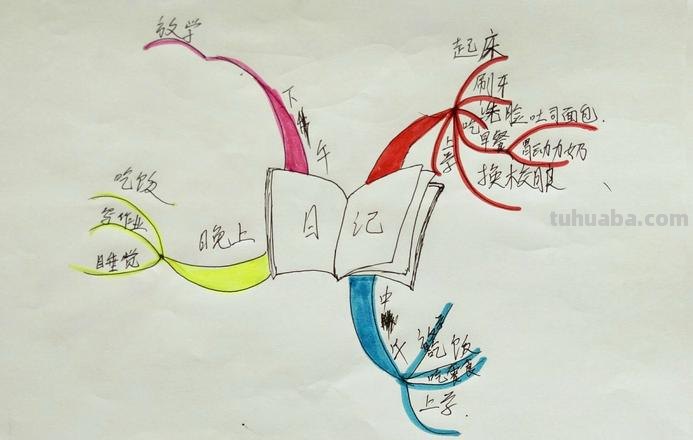 放学
下
午
起床
刷牙
洗脸
吐司面包
吃
早餐
换校服
上学
日记
吃饭
写作业
睡觉
晚上
中
午
吃饭
上学
tuhuaba.com